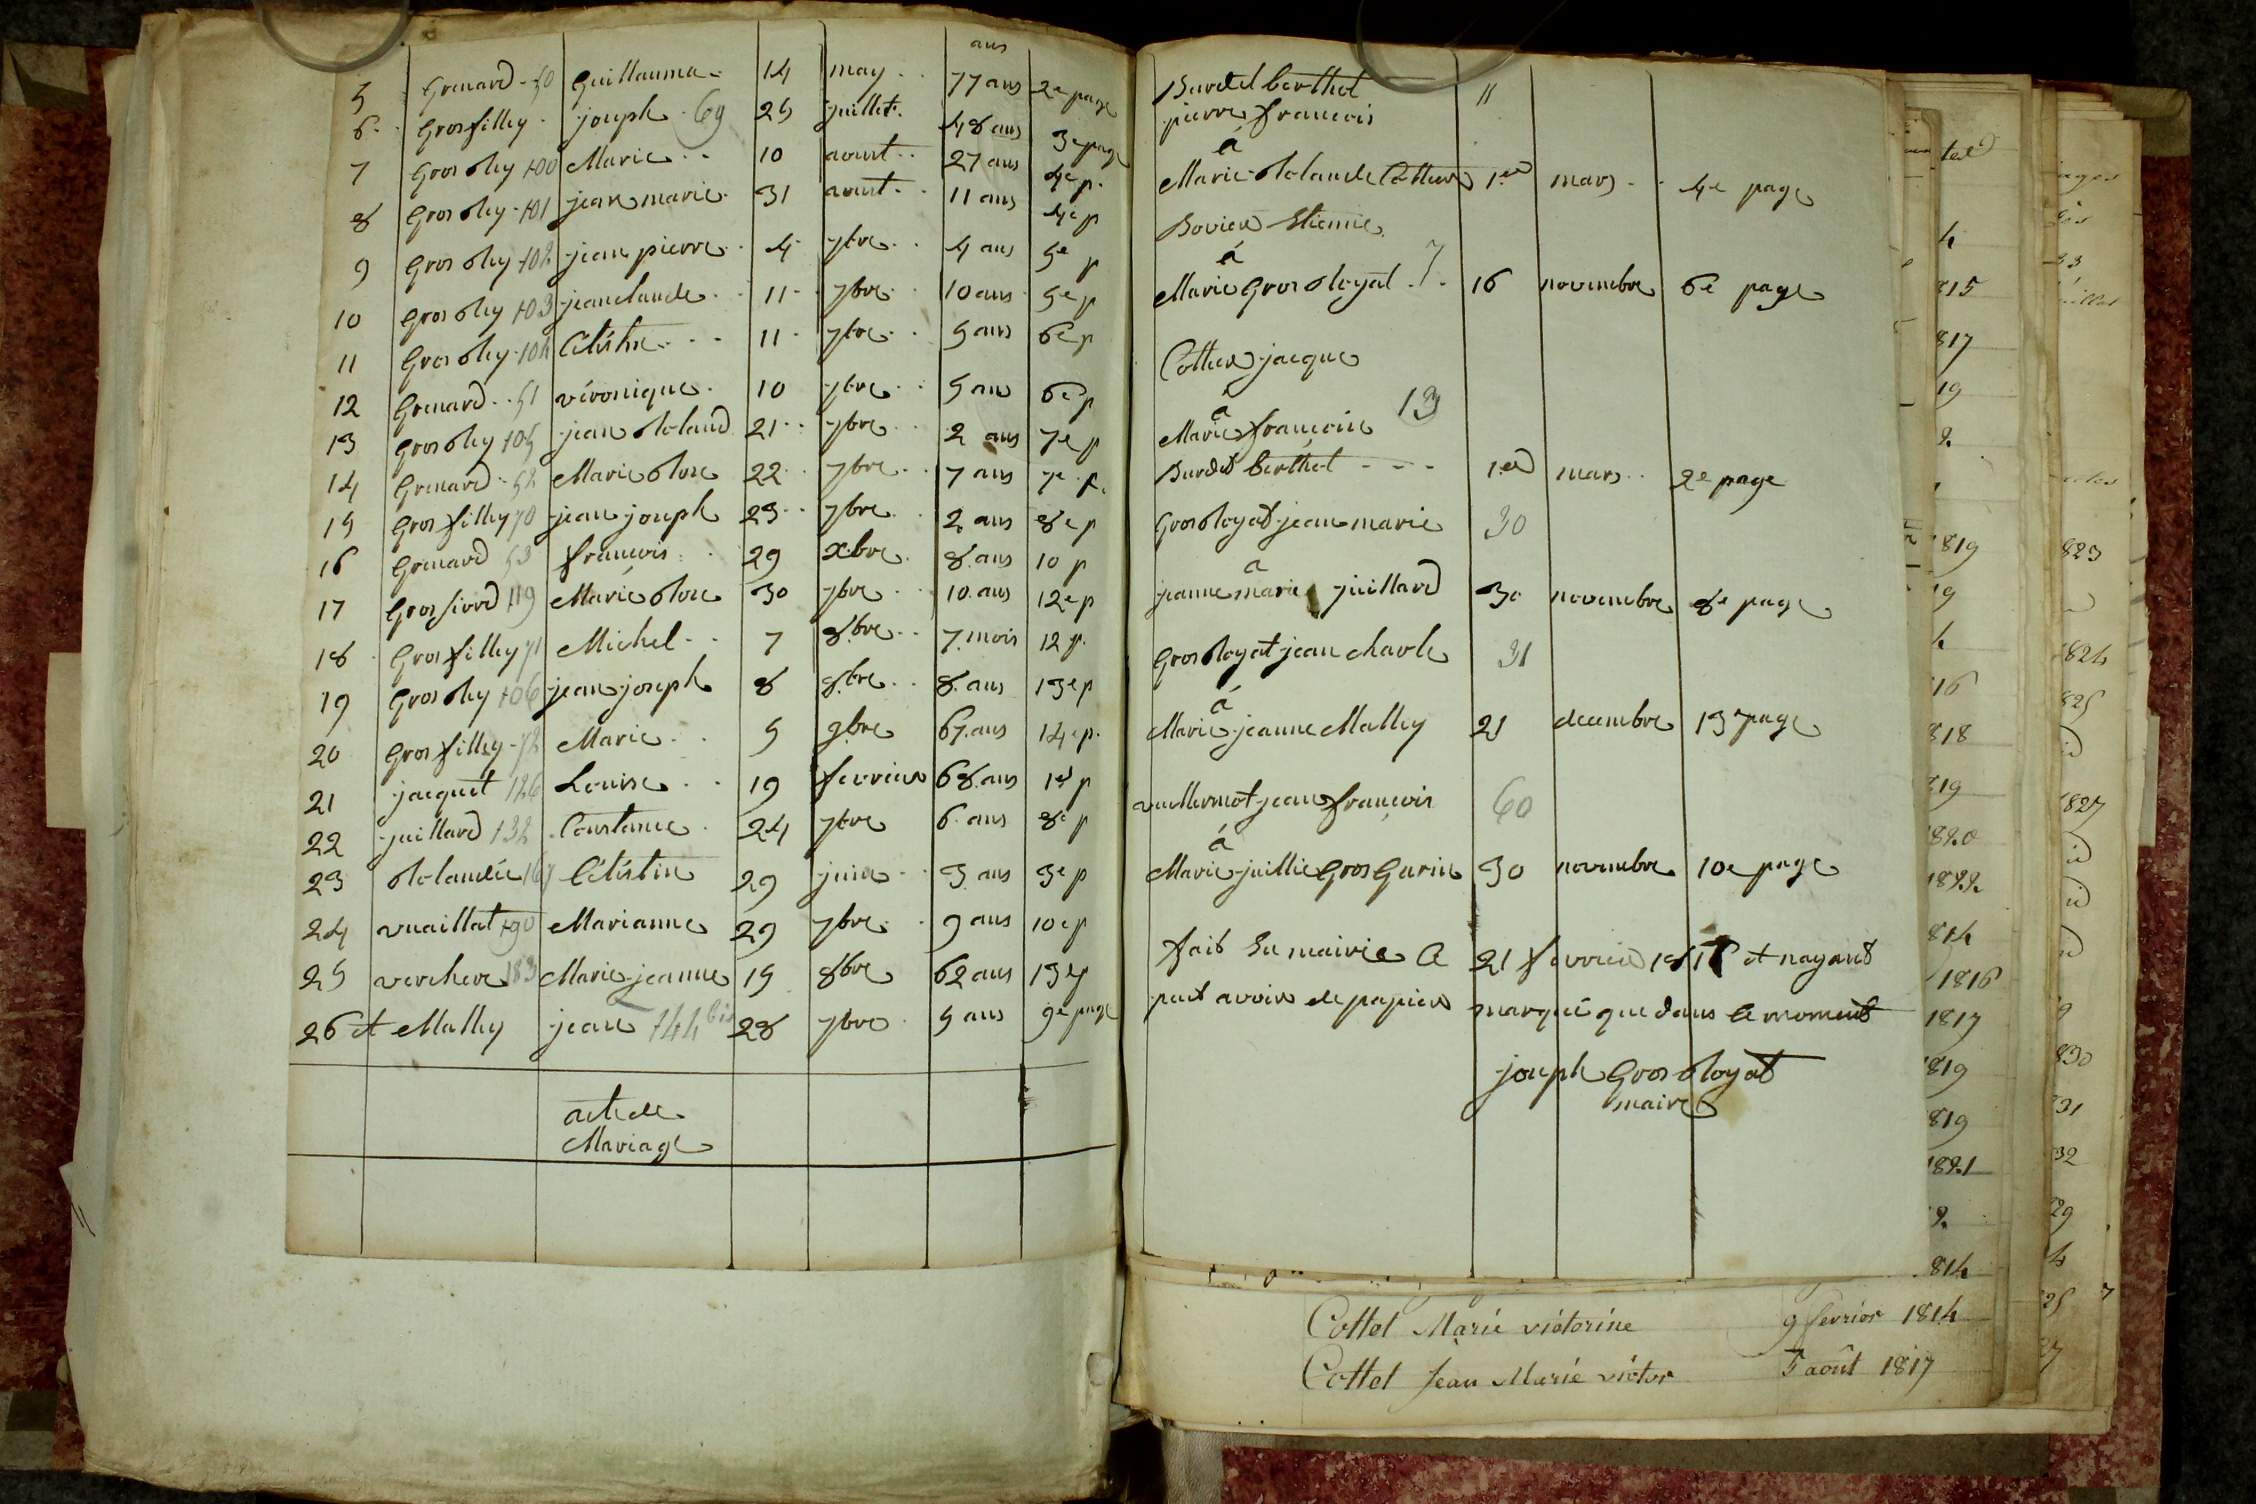 ans
5 Grenard - 50 Guillauma - 14 may 77 ans 2e page
6 Grosfilley joseph 69 25 juillet 48 ans 3e page
7 Gros Roley 100 Marie 10 aoust 27 ans 4e p.
8 Gros Roley 101 jean marie 31 aoust 11 ans 4e p
9 Gros Roley 102 jean pierre 4 7bre 4 ans 5e p
10 Gros Roley 103 jeanclaude 11 7bre 10 ans 5e p
11 Gros Roley 104 11 7bre 5 ans 6e p
12 Grenard 51 véronique 10 7bre 5 ans 6e p
13 Gros Roley 105 jean Roland 21 7bre 2 ans 7e p
14 Grenard 52 Marie Rose 22 7bre 7 ans 7e p.
15 Gros filley 70 jean joseph 23 7bre 2 ans 8e p
16 Grenard 53 francois 29 xbre 8 ans 10 p
17 119 Marie Rose 30 7bre 10 ans 12e p
18 Gros filley 71 Michel 7 8bre 7 mois 12 p.
19 Gros Roley 106 jean joseph 8 8bre 8 ans 13e p
20 Gros filley 72 Marie 5 9bre 67 ans 14e p.
21 jacquet 126 Louise 19 fevrier 68 ans 1er p
22 juillard 132 Constance 24 7bre 6 ans 8e p
23 167 Céléstin 29 juin 3 ans 3e p
24 vuaillat 190 Marianne 29 7bre 9 ans 10e p
25 verchere 183 Marie jeanne 15 8bre 62 ans 13e p
26 et Malley jean 144 bis 28 7bre 5 ans 9e page
acte de
Mariage
Burdet berthet 11
pierre francois
á
Marie Rolande Cottier 1er mars 4e page
Bovier Etienne
á
Marie Gros Royat 7 16 novembre 6e page
Cottier jacque
á 13
Marie francoise
Burdet berthet 1er mars 2e page
Gros Royat jean marie 30
á
jeanne marie juillard 30 novembre 8e page
Gros Royat jean charle 31
á
Marie jeanne Malley 21 decembre 13e page
vuillermot jean francois 60
á
Marie juillie Gros Gurin 30 novembre 10e page
fait En mairie Ce 21 fevrier et nayant
peut avoir de papier marqué que dans ce moment
joseph Gros Royat
maire
Cottet Marie victorine 9 fevrier 1814
Cottet Jean Marie victor 5 août 1817